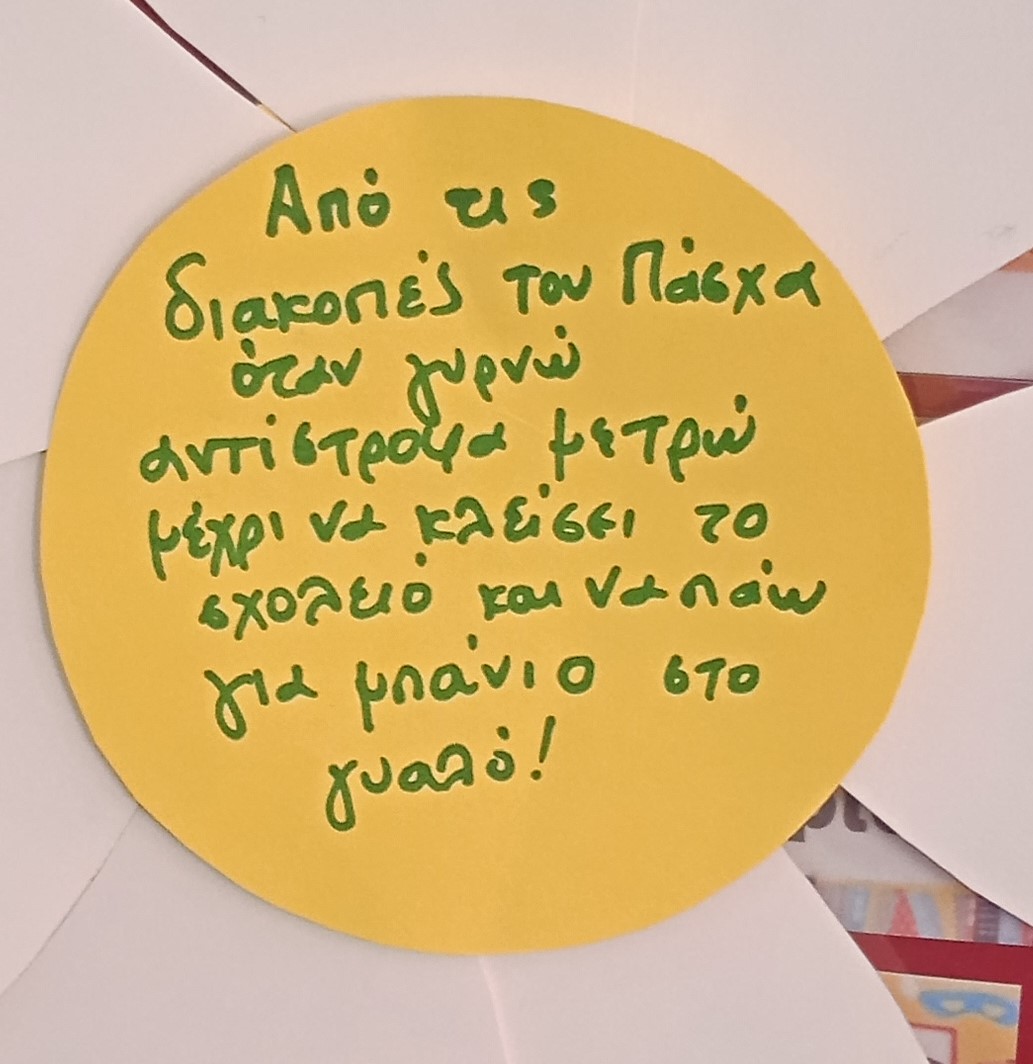 Από τις
διακοπές του Πάσχα
όταν γυρνώ
αντίστροφα μετρώ
μέχρι να κλείσει το
σχολειό και να πάω
για μπάνιο στο
γυαλό!